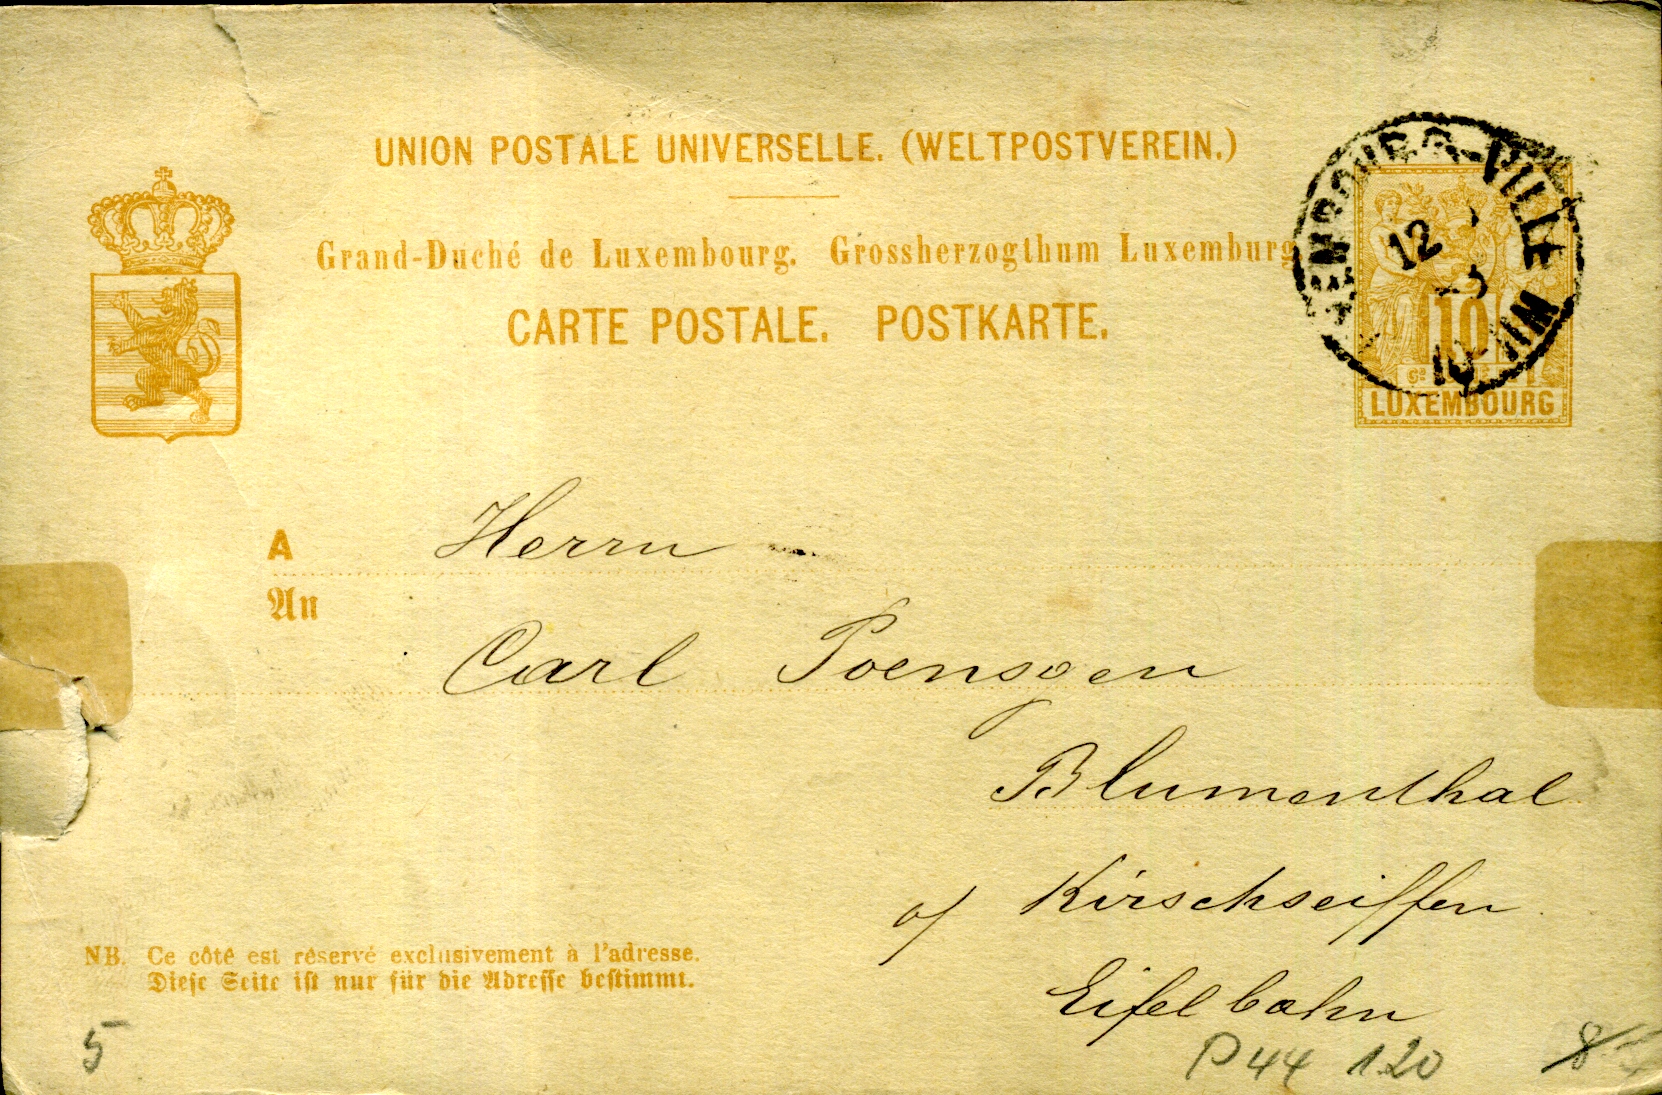 UNION POSTALE UNIVERSELLE. (WELTPOSTVEREIN.)
Grand-Duché de Luxembourg. Grossherzogthum Luxemburg
CARTE POSTALE. POSTKARTE.
LUXEMBOURG-VILLE
12
10
LUXEMBOURG
A
An
Herrn
Carl Poensgen
Blumenthal
a/ Kirschseiffen
Eifelbahn
NB. Ce côté est réservé exclusivement à l'adresse.
Diese Seite ist nur für die Adresse bestimmt.
5
P44 120